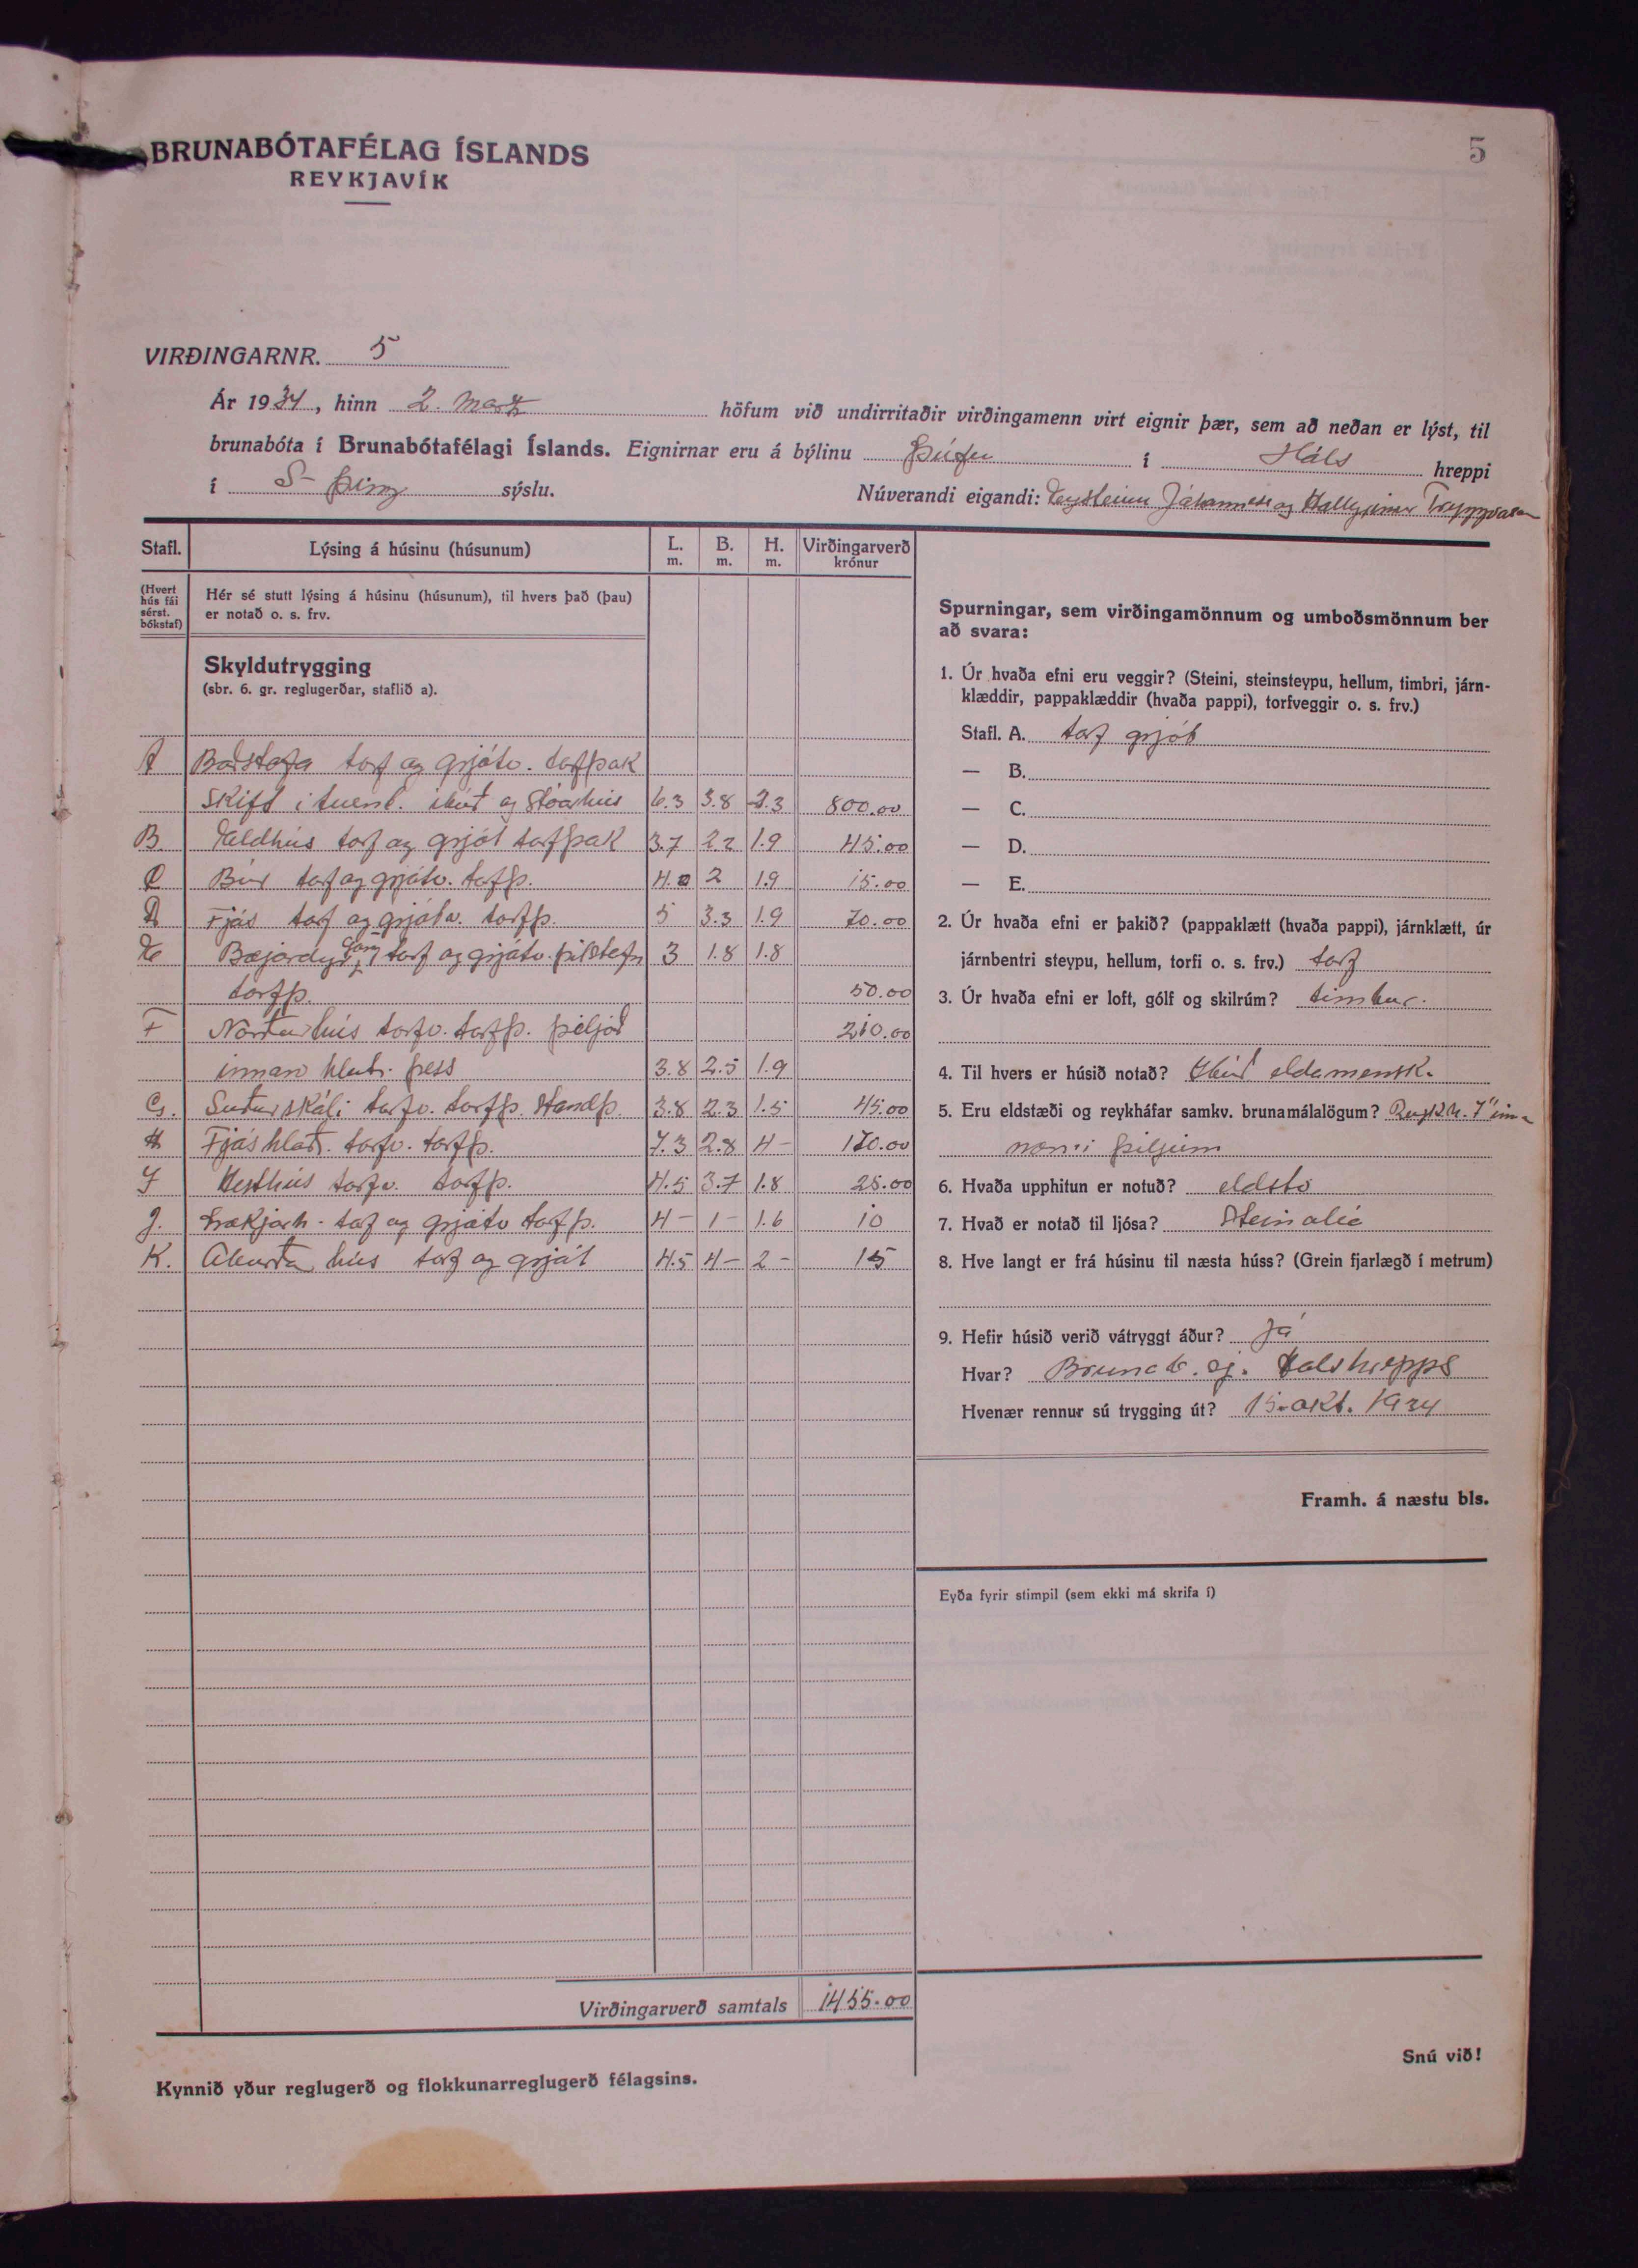 5
BRUNABÓTAFÉLAG ÍSLANDS
REYKJAVÍK
VIRÐINGARNR. 5
Ár 1934, hinn 2. marz höfum við undirritaðir virðingamenn virt eignir þær, sem að neðan er lýst, til
brunabóta í Brunabótafélagi Íslands. Eignirnar eru á býlinu Þúfu í Háls hreppi
í S-Þing sýslu. Núverandi eigandi: Jóhanness og Hallgrímur Tryggvason
Stafl. Lýsing á húsinu (húsunum) L. m. B. m. H. m. Virðingarverð krónur
(Hvert hús fái sérst. bókstaf)
Hér sé stutt lýsing á húsinu (húsunum), til hvers það (þau)
er notað o. s. frv.
Skyldutrygging
(sbr. 6. gr. reglugerðar, staflið a).
A Baðstofa torf og grjótv. torfþak
skift í tvent. íbúð og hús 6.3 3.8 2.3 800.00
B Eldhús torf og grjót torfþak 3.7 2.2 1.9 45.00
C Búr torf og grjótv. torfþ. 4.0 2 1.9 15.00
D Fjós torf og grjótv. torfþ. 5 3.3 1.9 70.00
E Bæjardyr göng torf og grjótv. þilstafn 3 1.8 1.8
torfþ. 50.00
F Norðurhús torfv. torfþ. þiljað 210.00
innan hluti þess 3.8 2.5 1.9
G. Suðurskáli torfv. torfþ. standþ. 3.8 2.3 1.5 45.00
H Fjóshlað. torfv. torfþ. 7.3 2.8 4- 170.00
I Hesthús torfv. torfþ. 4.5 3.7 1.8 25.00
J. torf og grjótv torfþ. 4- 1- 1.6 10
K. Áburðar hús torf og grjót 4.5 4- 2- 15
Virðingarverð samtals 1455.00
Kynnið yður reglugerð og flokkunarreglugerð félagsins.
Spurningar, sem virðingamönnum og umboðsmönnum ber
að svara:
1. Úr hvaða efni eru veggir? (Steini, steinsteypu, hellum, timbri, járn-
klæddir, pappaklæddir (hvaða pappi), torfveggir o. s. frv.)
Stafl. A. torf grjót
— B.
— C.
— D.
— E.
2. Úr hvaða efni er þakið? (pappaklætt (hvaða pappi), járnklætt, úr
járnbentri steypu, hellum, torfi o. s. frv.) torf
3. Úr hvaða efni er loft, gólf og skilrúm? timbur.
4. Til hvers er húsið notað? Íbúð eldamensk.
5. Eru eldstæði og reykháfar samkv. brunamálalögum? Reykh. 7"
þiljum
6. Hvaða upphitun er notuð? eldstó
7. Hvað er notað til ljósa? Steinolía
8. Hve langt er frá húsinu til næsta húss? (Grein fjarlægð í metrum)
9. Hefir húsið verið vátryggt áður? Já
Hvar? Brunab. sj. Halshrepps
Hvenær rennur sú trygging út? 15. okt. 1934
Framh. á næstu bls.
Eyða fyrir stimpil (sem ekki má skrifa í)
Snú við!